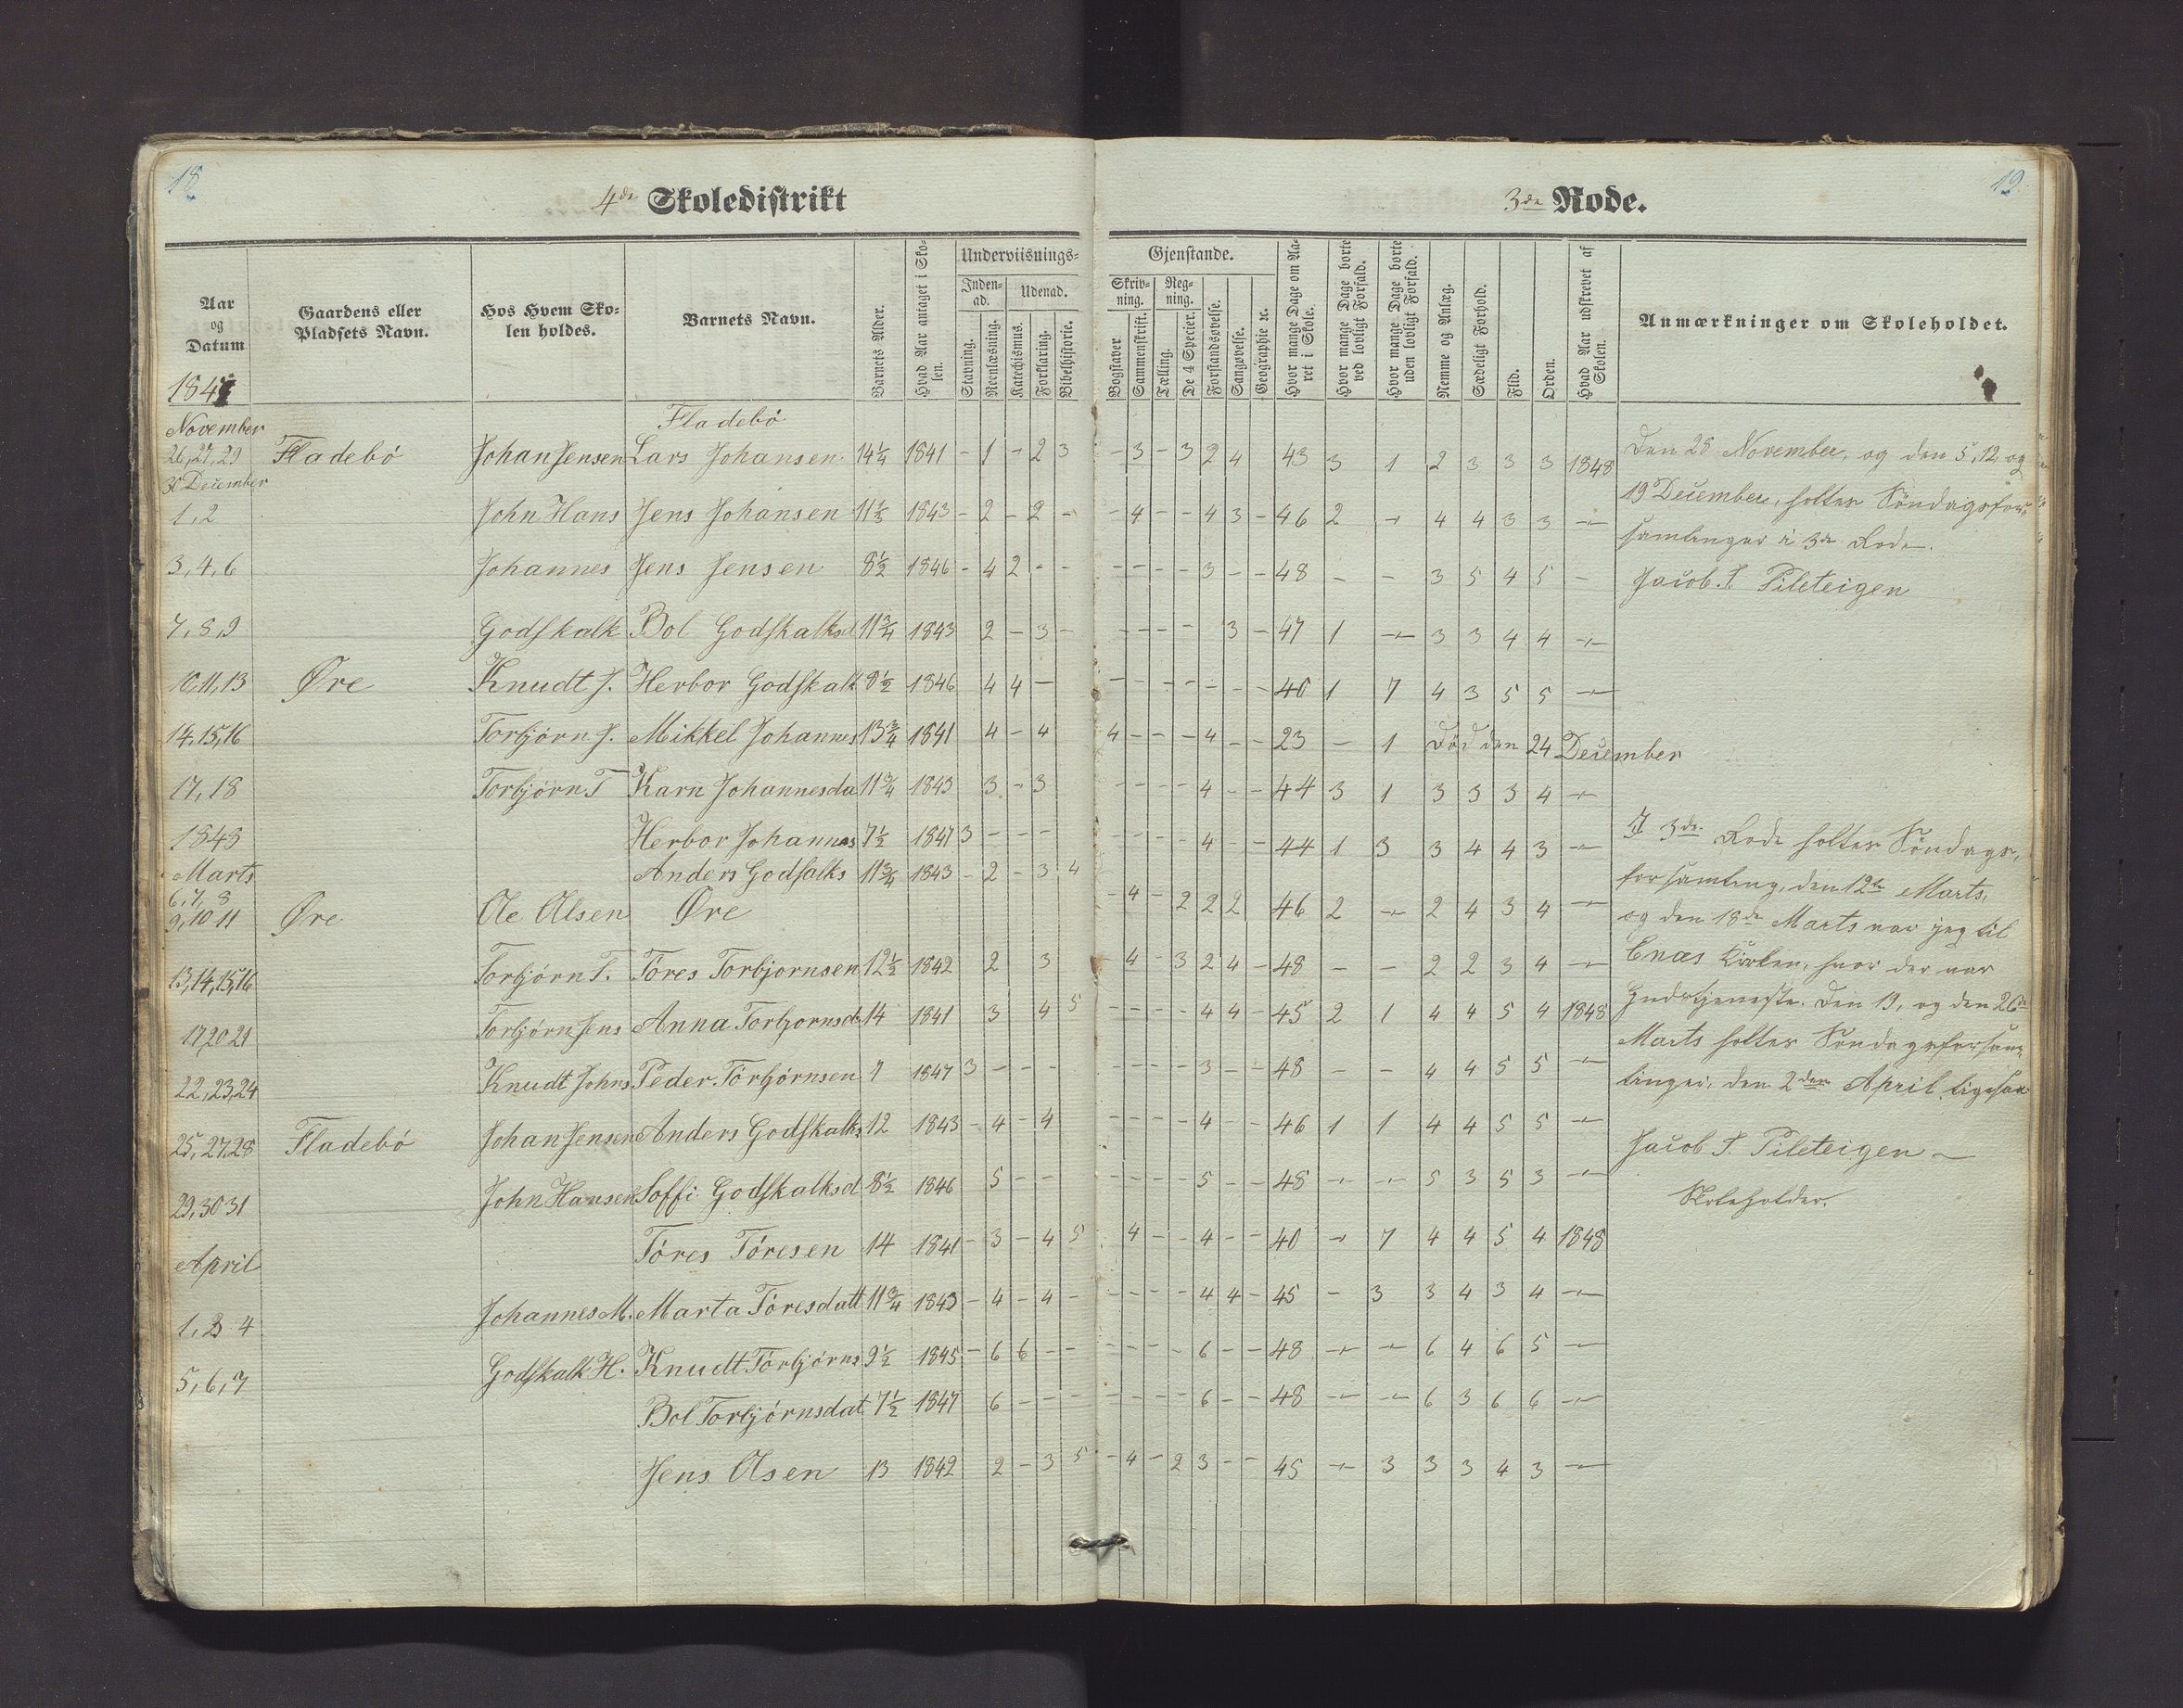 18
4de Skoledistrikt
Aar og Datum
Gaardens eller Pladsets Navn.
Hos Hvem Skolen holdes.
Barnets Navn.
Barnets Alder.
Hvad Aar antaget i Skolen.
Underviisnings-
Inden-ad.
Udenad.
Stavning.
Reenlæsning.
Katechismus.
Forklaring.
Bibelhistorie.
1847
November
Fladebö
26,27,29 Fladebö Johan Jensen Lars Johansen 14¼ 1841 - 1 - 2 3
30 December
1,2 John Hans Jens Johansen 11⅓ 1843 - 2 - 2 -
3,4,6 Johannes Jens Jensen 8½ 1846 - 4 2 - -
7,8,9 Godskalk Bol Godskalksd 11¾ 1843 2 - 3 -
10,11,13 Øre Knudt J. Herbor Godskalk 8½ 1846 4 4 -
14,15,16 Torbjörn J. Mikkel Johannes 13¾ 1841 4 - 4
17,18 Torbjörn T Karn Johannesda 11¾ 1843 3 - 3
1848 Herbor Johannes 7½ 1847 3 - - -
Marts Anders Godsalks 11¾ 1843 - 2 - 3 4
6,7,8
9,10 11 Øre Ole Olsen Øre
13,14,15,16 Torbjörn T. Töres Torbjornsen 12½ 1842 2 3
17,20 21 Torbjörn Jens Anna Torbjornsd 14 1841 3 4 5
22,23,24 Knudt Johns Peder Törbjörnsen 7 1847 3 - - -
25,27,28 Fladebö Johan Jensen Anders Godskalks 12 1843 - 4 - 4
29,30 31 John Hansen Soffi Godskalksd 8½ 1846 5 - -
April Töres Töresen 14 1841 - 3 - 4 5
1,3 4 Johannes M. Marta Töresdatt 11¾ 1843 - 4 - 4 -
5,6,7 Godskalk H. Knudt Törbjörns 9½ 1845 - 6 6 - -
Bol Torbjörnsdat 7½ 1847 6 - - -
Jens Olsen 13 1842 2 - 3 5
19
3de Rode.
Gjenstande.
Skriv-ning.
Reg-ning.
Bogstaver
Sammenskrift.
Tælling.
De 4 Specier.
Forstandsøvelse.
Sangøvelse.
Geographie ec.
Hvor mange Dage om Aaret i Skole.
Hvor mange Dage borte ved lovligt Forfald.
Hvor mange Dage borte uden lovligt Forfald.
Nemme og Anlæg.
Sædeligt Forhold.
Flid.
Orden.
Hvad Aar udskrevet af Skolen.
Anmærkninger om Skoleholdet.
- 3 - 3 2 4 43 3 1 2 3 3 3 1848
- 4 - - 4 3 - 46 2 - 4 4 3 3 -
- - - - 3 - - 48 - - 3 5 4 5 -
- - - - 3 - 47 1 - 3 3 4 4 -
- - - - - - - 40 1 7 4 3 5 5 -
4 - - - 4 - - 23 - 1 Död den 24 December
- - - - 4 - - 44 3 1 3 3 3 4 -
- - - - 4 - - 44 1 3 3 4 4 3 -
- 4 - 2 2 2 46 2 - 2 4 3 4 -
- 4 - 3 2 4 - 48 - - 2 2 3 4 -
- - - - 4 4 - 45 2 1 4 4 5 4 1848
- - - - 3 - - 48 - - 4 4 5 5 -
- - - - 4 - - 46 1 1 4 4 5 5 -
- - - - 5 - - 48 - - 5 3 5 3 -
4 - - 4 - - 40 - 7 4 4 5 4 1848
- - - - 4 4 - 45 - 3 3 4 3 4 -
- - - - 6 - - 48 - - 6 4 6 5 -
- - - - 6 - - 48 - - 6 3 6 6 -
- 4 - 2 3 - - 45 - 3 3 3 4 3 -
Den 28 November, og den 5,12 og
19 December, holtes Söndagsfor-
samlinger i 3de Rode.
Jacob. J. Pileteigen
I 3de Rode holtes Söndags,
forsamling, den 12te Marts,
og den 18de Marts var jeg til
Enas Kirken, hvor der var
Gudstjeneste. Den 19, og den 26de
Marts holtes Söndagsforsam-
linger, den 2den April ligesaa
Jacob J. Pileteigen
Skoleholder.